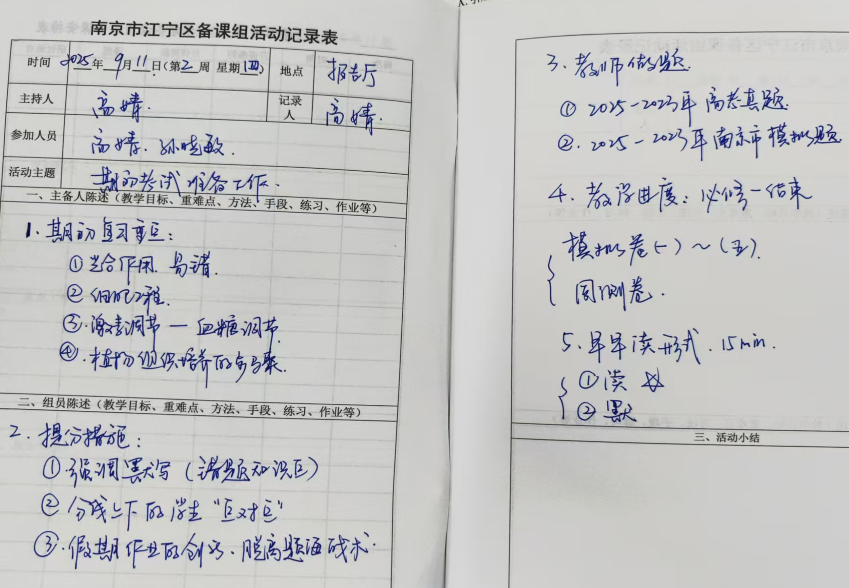 南京市江宁区备课组活动记录表
时间 2025年9月11日(第2周 星期四) 地点 报告厅
主持人 高婧. 记录人 高婧.
参加人员 高婧. 孙晓敏.
活动主题 期初考试准备工作.
一、主备人陈述（教学目标、重难点、方法、手段、练习、作业等）
1. 期初复习重点:
①光合作用. 易错.
②细胞工程.
③.激素调节 — 血糖调节.
④.植物组织培养的步骤.
二、组员陈述（教学目标、重难点、方法、手段、练习、作业等）
2. 提分措施:
①强调默写（错题知识点）
②分线上下的学生“点对点”
③.假期作业的创新、脱离题海战术.
3. 教师做题.
① 2025－2023年高考真题.
②. 2025－2023年南京市模拟题
4. 教学进度: 必修一结束
模拟卷(一)～(五).
周测卷.
5. 早早读形式. 15min.
①读
②默
三、活动小结